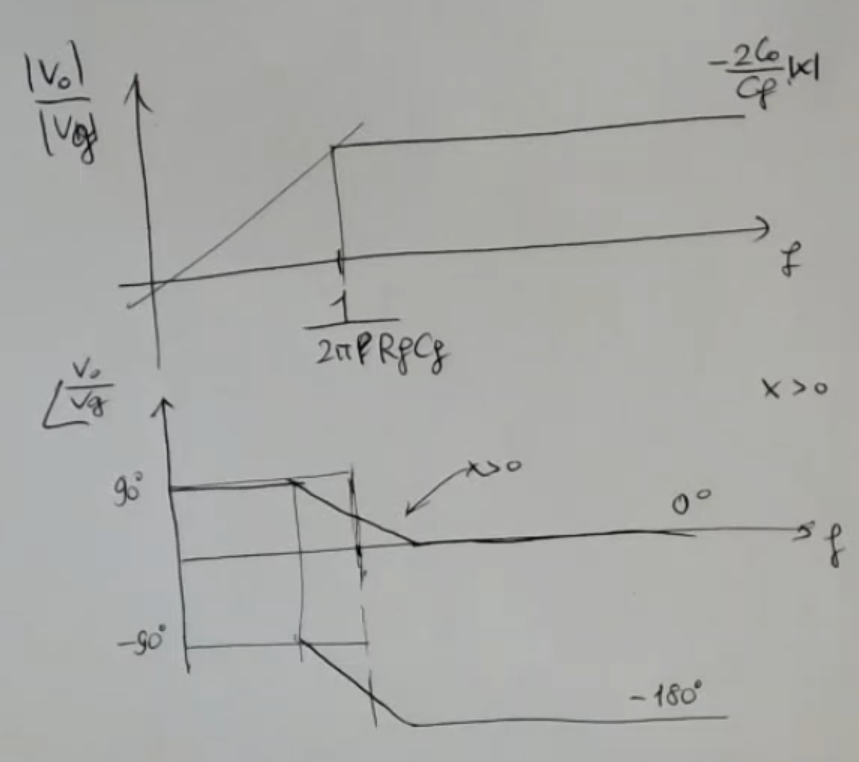 |Vo|
|Vg|
-2Co
Cf |x|
f
1
2πf RfCf
∠ Vo
Vg
x>0
90°
x>0
0°
f
-90°
-180°